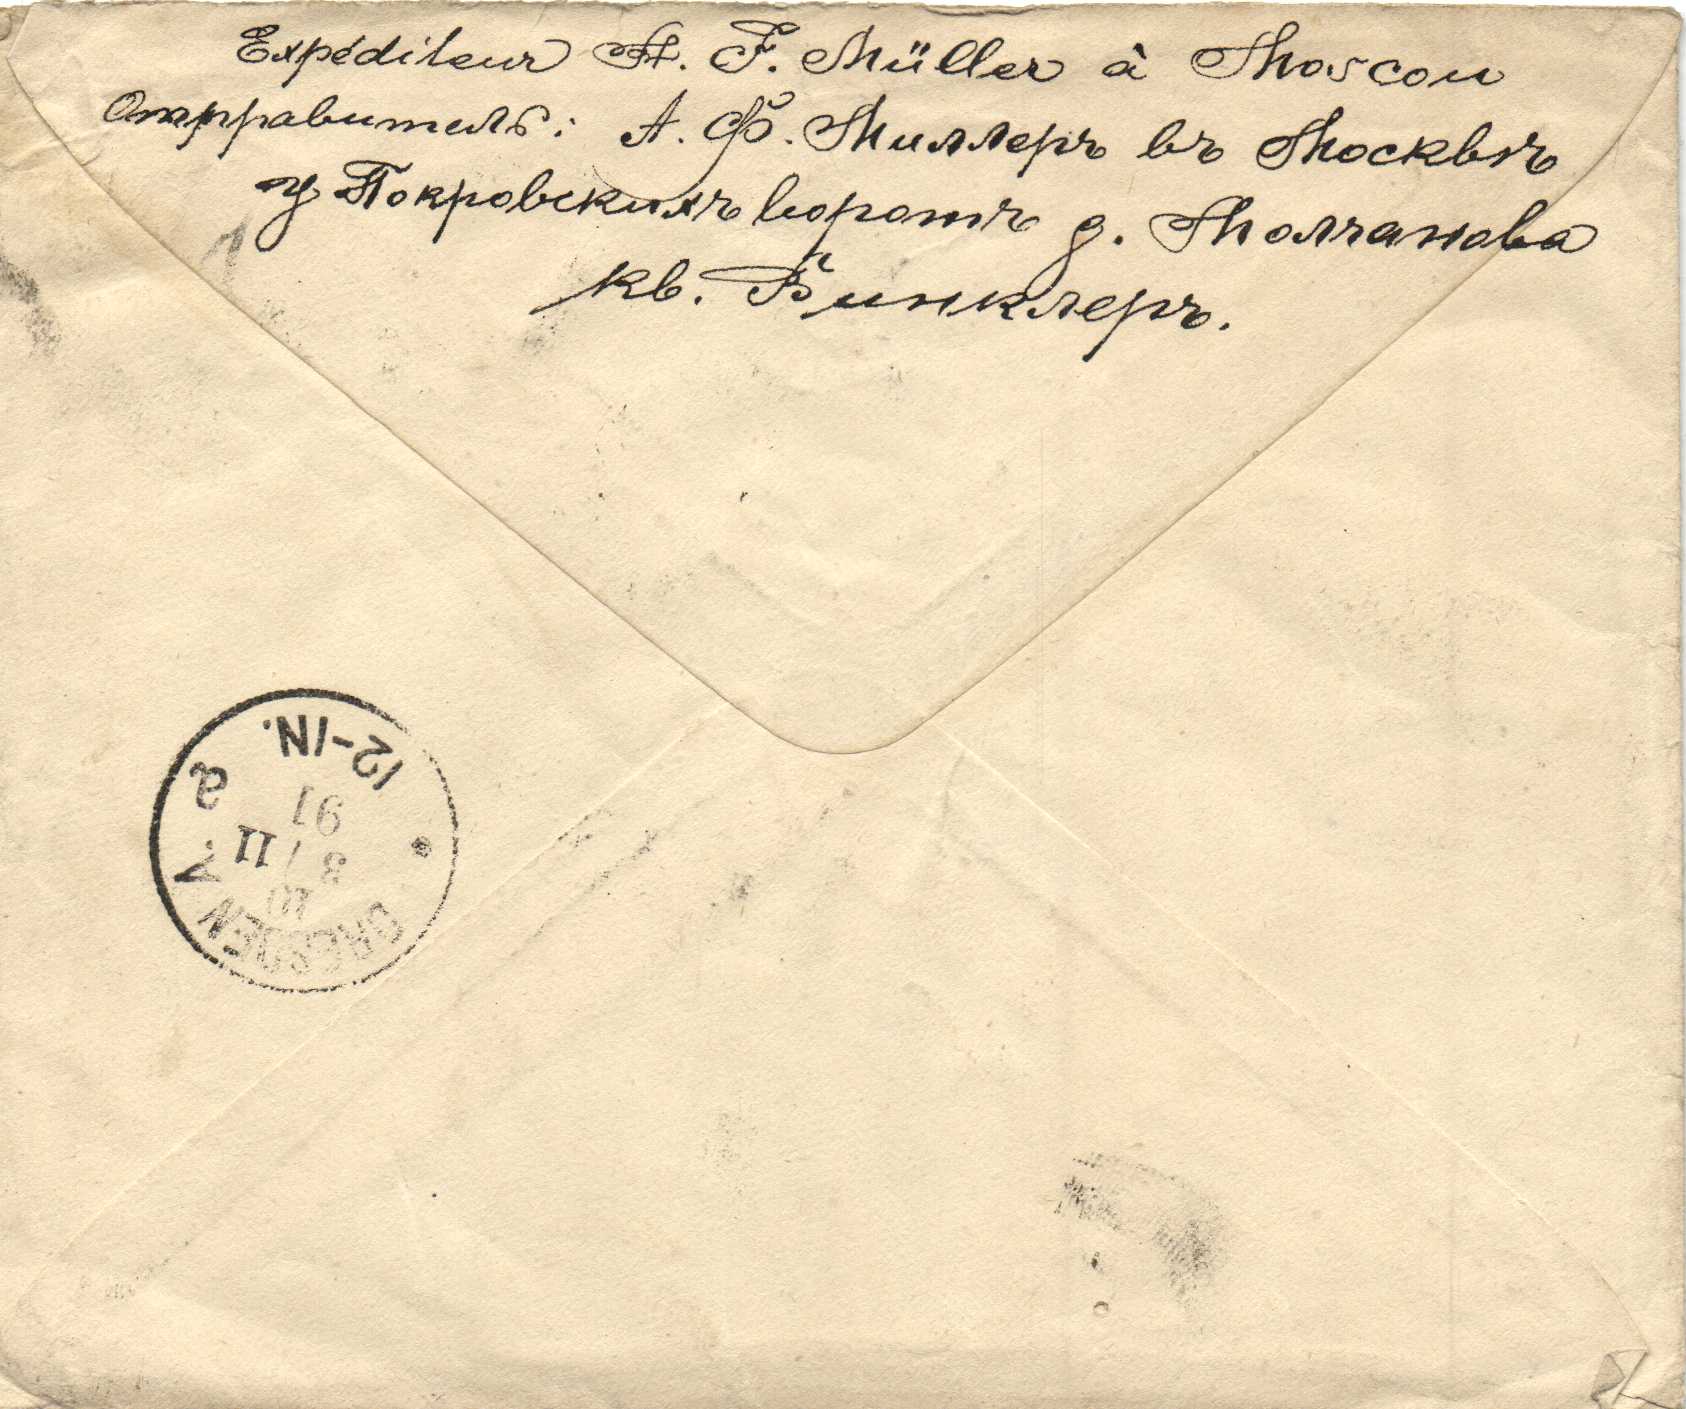 Expéditeur A. F. Müller à Moscou
Отправитель: А. Ф. Миллеръ въ Москвѣ
у Покровскихъ воротъ д. Молчанова
кв. Винклеръ.
DRESDEN A.
3 / II
91
12-1N.